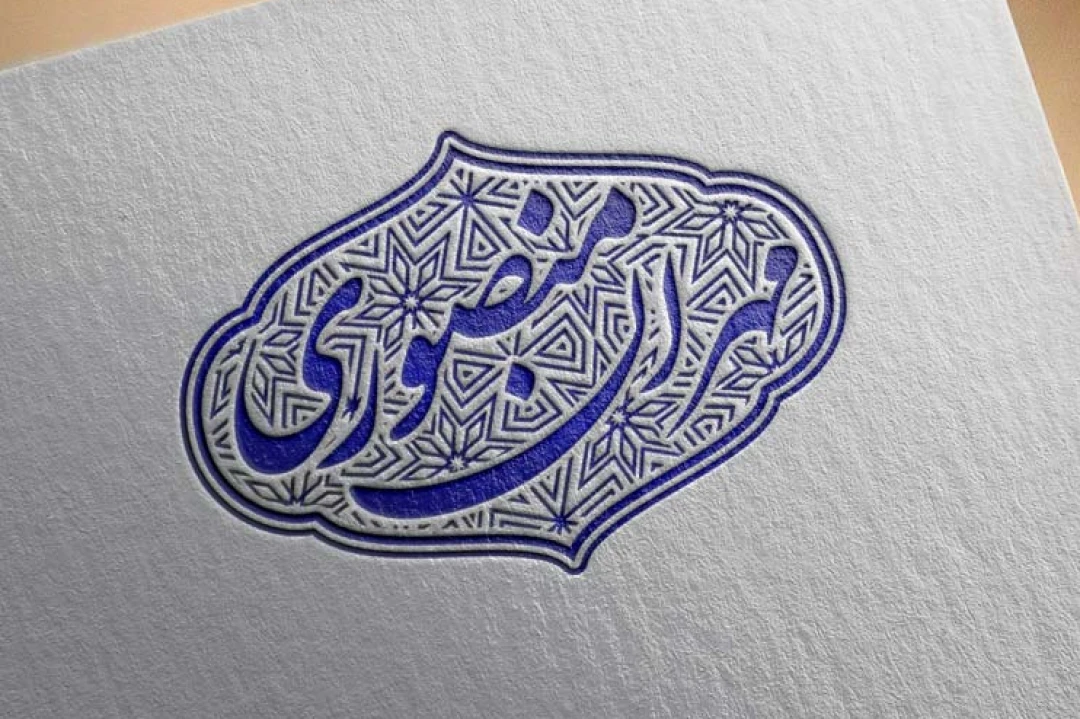 مهران منصوری